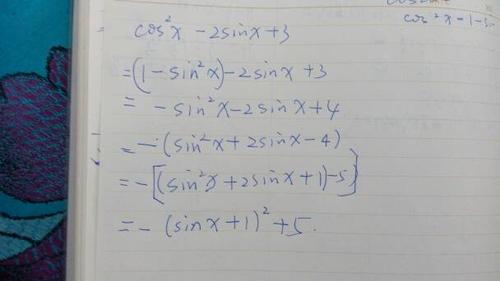 cos²x - 2sinx + 3
= (1 - sin²x) - 2sinx + 3
= - sin²x - 2sinx + 4
= -(sin²x + 2sinx - 4)
= -[(sin²x + 2sinx + 1) - 5]
= - (sinx + 1)² + 5.